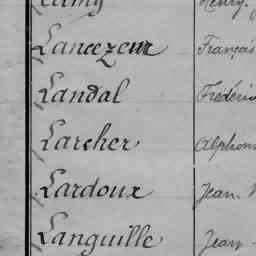 Henry.
Lancezeur François
Landal Frédéric
Larcher Alphons
Lardoux Jean
Languille Jean